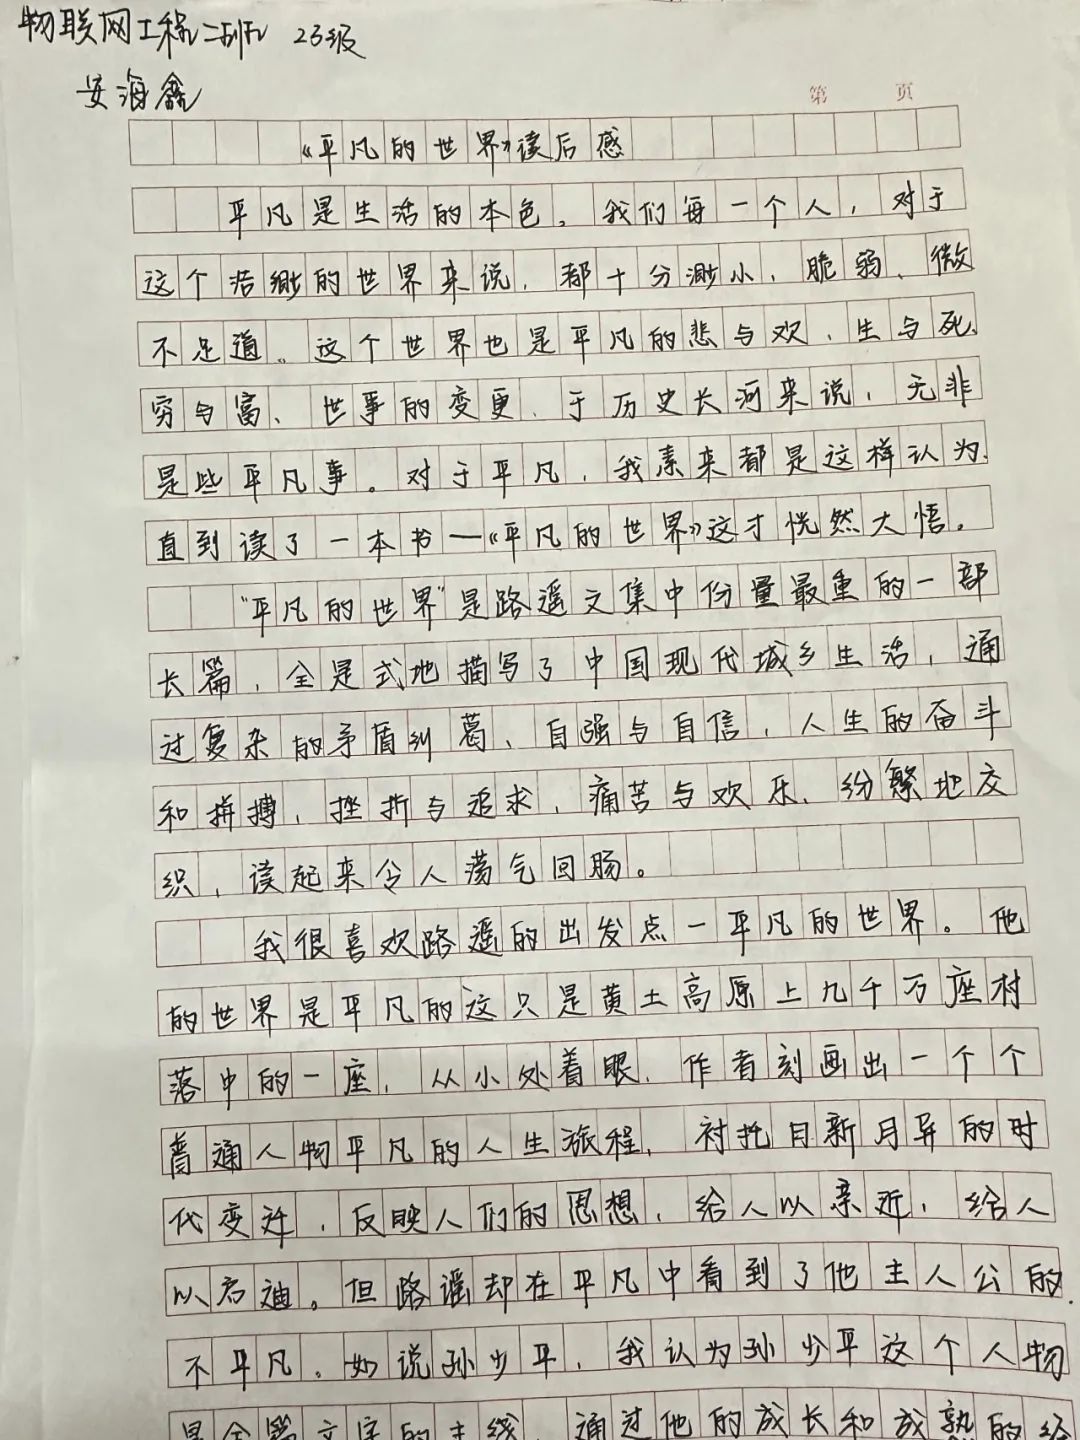 物联网工程二班 23级
安海鑫
第 页
《平凡的世界》读后感
平凡是生活的本色。我们每一个人，对于
这个浩缈的世界来说，都十分渺小、脆弱、微
不足道。这个世界也是平凡的悲与欢、生与死、
穷与富、世事的变更、于历史长河来说，无非
是些平凡事。对于平凡，我素来都是这样认为、
直到读了一本书—《平凡的世界》这才恍然大悟。
“平凡的世界”是路遥文集中份量最重的一部
长篇，全是式地描写了中国现代城乡生活，通
过复杂的矛盾纠葛、自强与自信，人生的奋斗
和拼搏、挫折与追求、痛苦与欢乐、纷繁地交
织，读起来令人荡气回肠。
我很喜欢路遥的出发点—平凡的世界。他
的世界是平凡的这只是黄土高原上九千万座村
落中的一座，从小处着眼、作者刻画出一个个
普通人物平凡的人生旅程，衬托日新月异的时
代变迁，反映人们的思想，给人以亲近，给人
以启迪。但路遥却在平凡中看到了他主人公的
不平凡。如说孙少平，我认为孙少平这个人物
是全篇文字的主线，通过他的成长和成熟的给